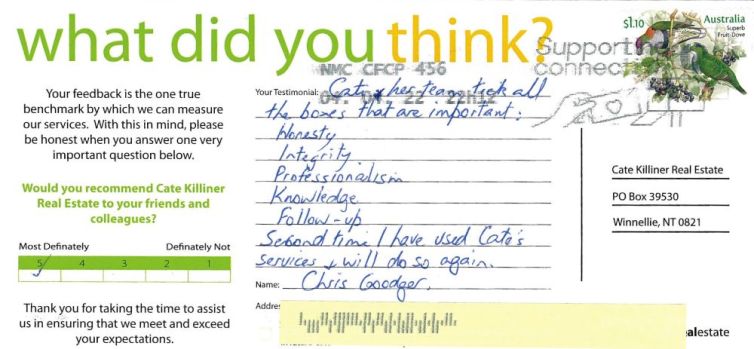 what did you think?
$1.10
Australia
Superb
Fruit-Dove
Supporting
connec
NMC CFCP 456
Your feedback is the one true
benchmark by which we can measure
our services. With this in mind, please
be honest when you answer one very
important question below.
Would you recommend Cate Killiner
Real Estate to your friends and
colleagues?
Most Definately Definately Not
5 4 3 2 1
Thank you for taking the time to assist
us in ensuring that we meet and exceed
your expectations.
Your Testimonial: Cate & her team tick all
the boxes that are important:
Honesty
Integrity
Professionalism
Knowledge
Follow-up
Second time I have used Cate's
services & will do so again.
Name: Chris Goodger.
Addres
Cate Killiner Real Estate
PO Box 39530
Winnellie, NT 0821
alestate